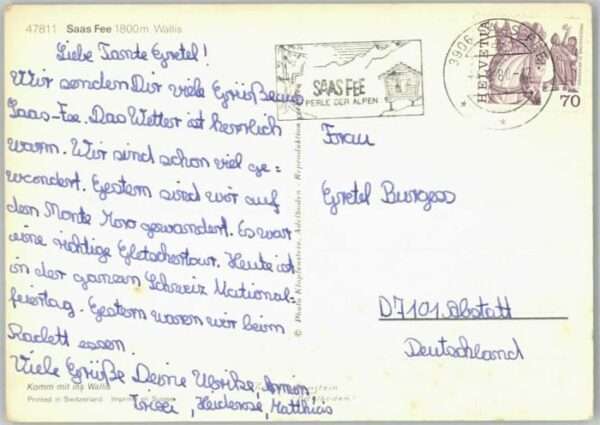 47811 Saas Fee 1800 m Wallis
Liebe Tante Gretel!
Wir senden Dir viele Grüße aus
Saas-Fee. Das Wetter ist herrlich
warm. Wir sind schon viel ge=
wandert. Gestern sind wir auf
den Monte Moro gewandert. Es war
eine richtige Gletschertour. Heute ist
in der ganzen Schweiz National=
feiertag. Gestern waren wir beim
Raclett essen.
Viele Grüße Deine Ulrike, Armin
Trixi, Heiderose, Matthias
Komm mit ins Wallis
Printed in Switzerland
© Photo Klopfenstein, Adelboden - Reproduktion
SAAS FEE
PERLE DER ALPEN
3906 SAAS-FEE
HELVETIA
70
Frau
Gretel Burgess
D7101 Abstatt
Deutschland